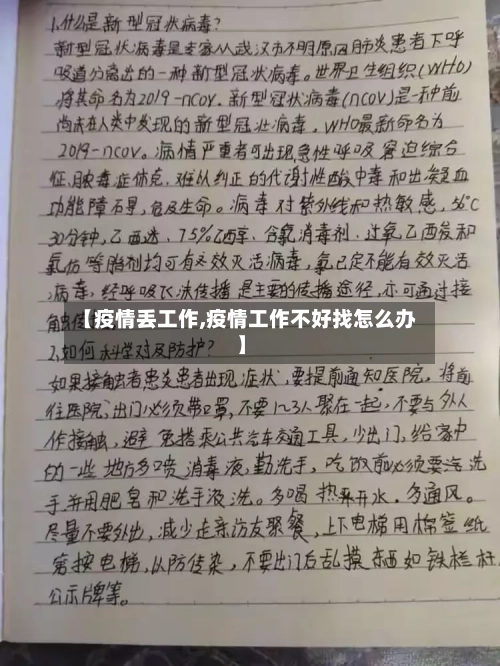 1.什么是新型冠状病毒?
新型冠状病毒是专家从武汉市不明原因肺炎患者下呼
吸道分离出的一种新型冠状病毒。世界卫生组织(WHO)
将其命名为2019-nCOV.新型冠状病毒(nCOV)是一种前
尚未在人类中发现的新型冠状病毒。WHO最新命名为
2019-nCOV。病情严重者可出现急性呼吸窘迫综合
征、脓毒症休克、难以纠正的代谢性酸中毒和出凝血
功能障碍,危及生命。病毒对紫外线和热敏感,56℃
30分钟,乙醚、75%乙醇、含氯消毒剂、过氧乙酸和
氯仿等脂剂均可有效灭活病毒,氯已定不能有效灭活
病毒,经呼吸飞沫传播是主要的传播途径,亦可通过接
触传
【疫情丢工作,疫情工作不好找怎么办
】
2.如何科学对及防护?
如果接触者患炎患者出现症状,要提前通知医院,将前
往医院,出门必须带口罩,不要几3人聚在一起,不要与外人
作接触,避免搭乘公共汽车交通工具,少出门,给家中
的一些地方多喷消毒液,勤洗手,吃饭前必须要洗洗
手并用肥皂和洗手液洗。多喝热开水.多通风。
尽量不要外出,减少走亲访友聚餐,上下电梯用棉签纸
按电梯,以防传染,不要出门后乱摸东西如铁栏杆
公示牌等。